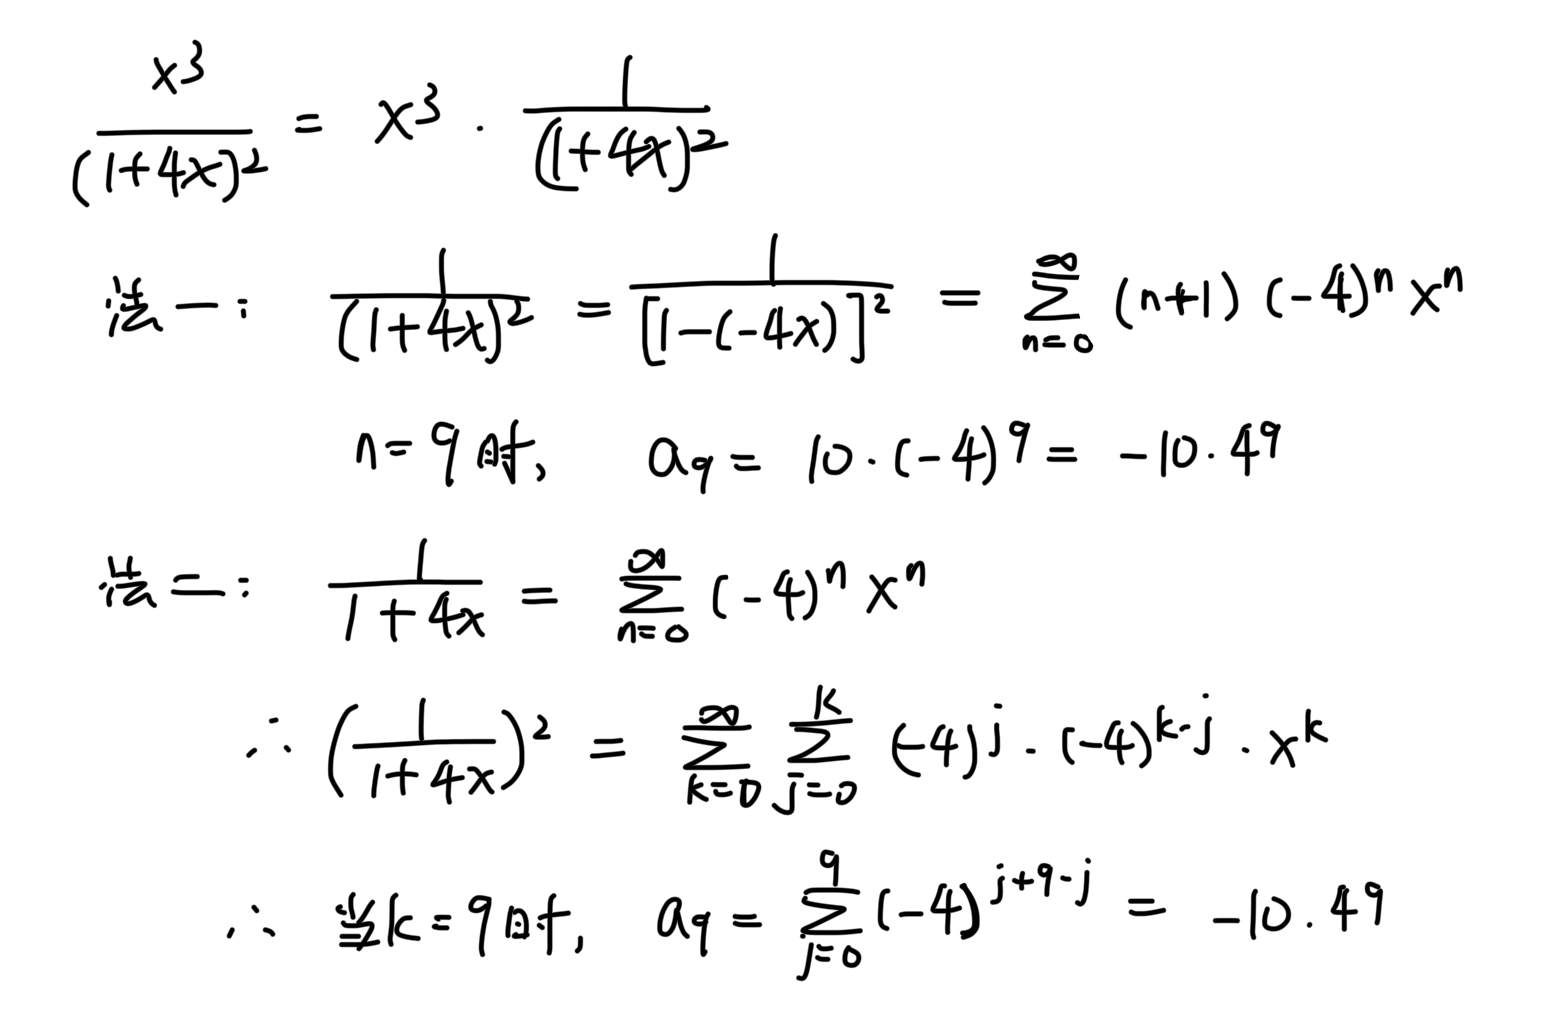 x³/(1+4x)² = x³ · 1/(1+4x)²
法一: 1/(1+4x)² = 1/[1-(-4x)]² = ∑_{n=0}^{∞} (n+1) (-4)ⁿ xⁿ
n=9时, a₉ = 10·(-4)⁹ = -10·4⁹
法二: 1/(1+4x) = ∑_{n=0}^{∞} (-4)ⁿ xⁿ
∴ (1/(1+4x))² = ∑_{k=0}^{∞} ∑_{j=0}^{k} (-4)^j · (-4)^{k-j} · x^k
∴ 当k=9时, a₉ = ∑_{j=0}^{9} (-4)^{j+9-j} = -10·4⁹